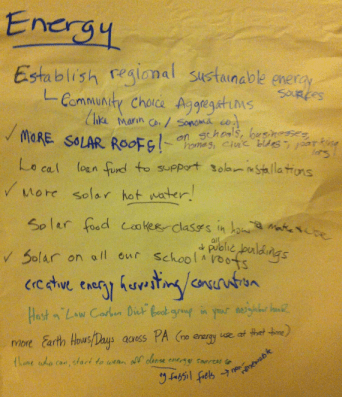 Energy
Establish regional sustainable energy sources
Community Choice Aggregations
(like Marin Co./Sonoma Co.)
✓ MORE SOLAR ROOFS! - on schools, businesses,
homes, civic bldgs, parking lots!
Local loan fund to support solar installations
✓ More solar hot water!
Solar food cooker classes in how to make & use
✓ Solar on all our school & public buildings roofs
creative energy harvesting/conservation
Host a "Low Carbon Diet" Book group in your neighborhood.
more Earth Hours/Days across PA (no energy use at that time)
those who can, start to wean off energy sources
eg fossil fuels →